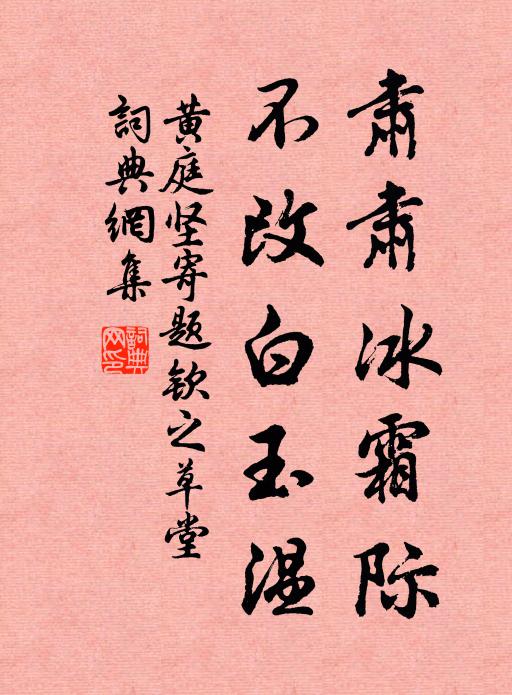 肃肃冰霜际
不改白玉温
黄庭坚寄题钦之草堂
詞典網集
詞典
网印